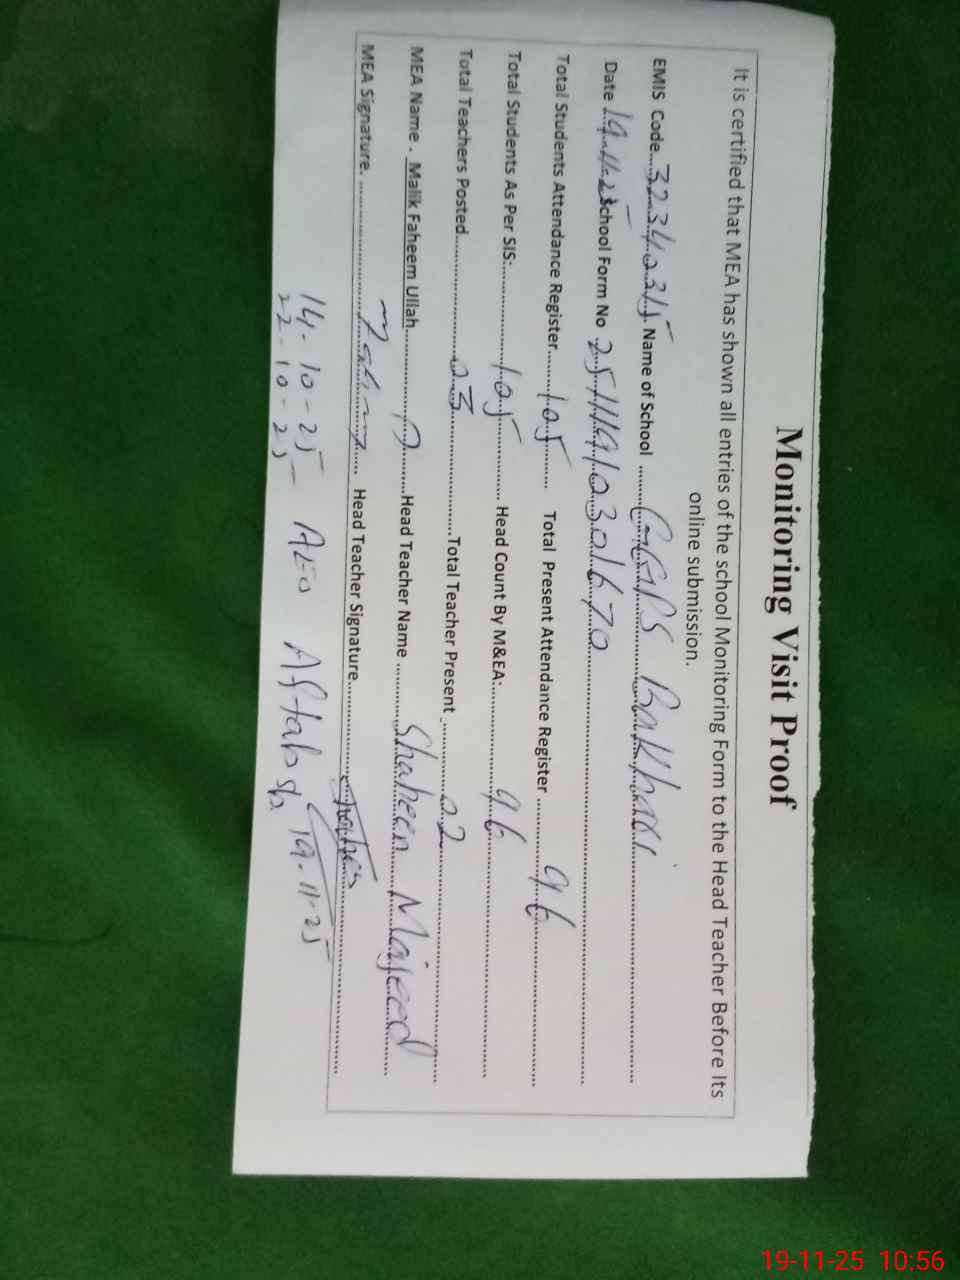 Monitoring Visit Proof
It is certified that MEA has shown all entries of the school Monitoring Form to the Head Teacher Before Its
online submission.
EMIS Code.....32340315. Name of School ......... GGPS Bakhari
Date 19-11-25 School Form No 25111910301670
Total Students Attendance Register.....105...... Total Present Attendance Register ........... 96
Total Students As Per SIS:...........105........... Head Count By M&EA:............... 96
Total Teachers Posted................03................Total Teacher Present ........02
MEA Name . Malik Faheem Ullah...................Head Teacher Name .......... Shaheen Majeed
MEA Signature. ............................ Head Teacher Signature................
14-10-25 AEO Aftab sb 19-11-25
22-10-25
19-11-25 10:56